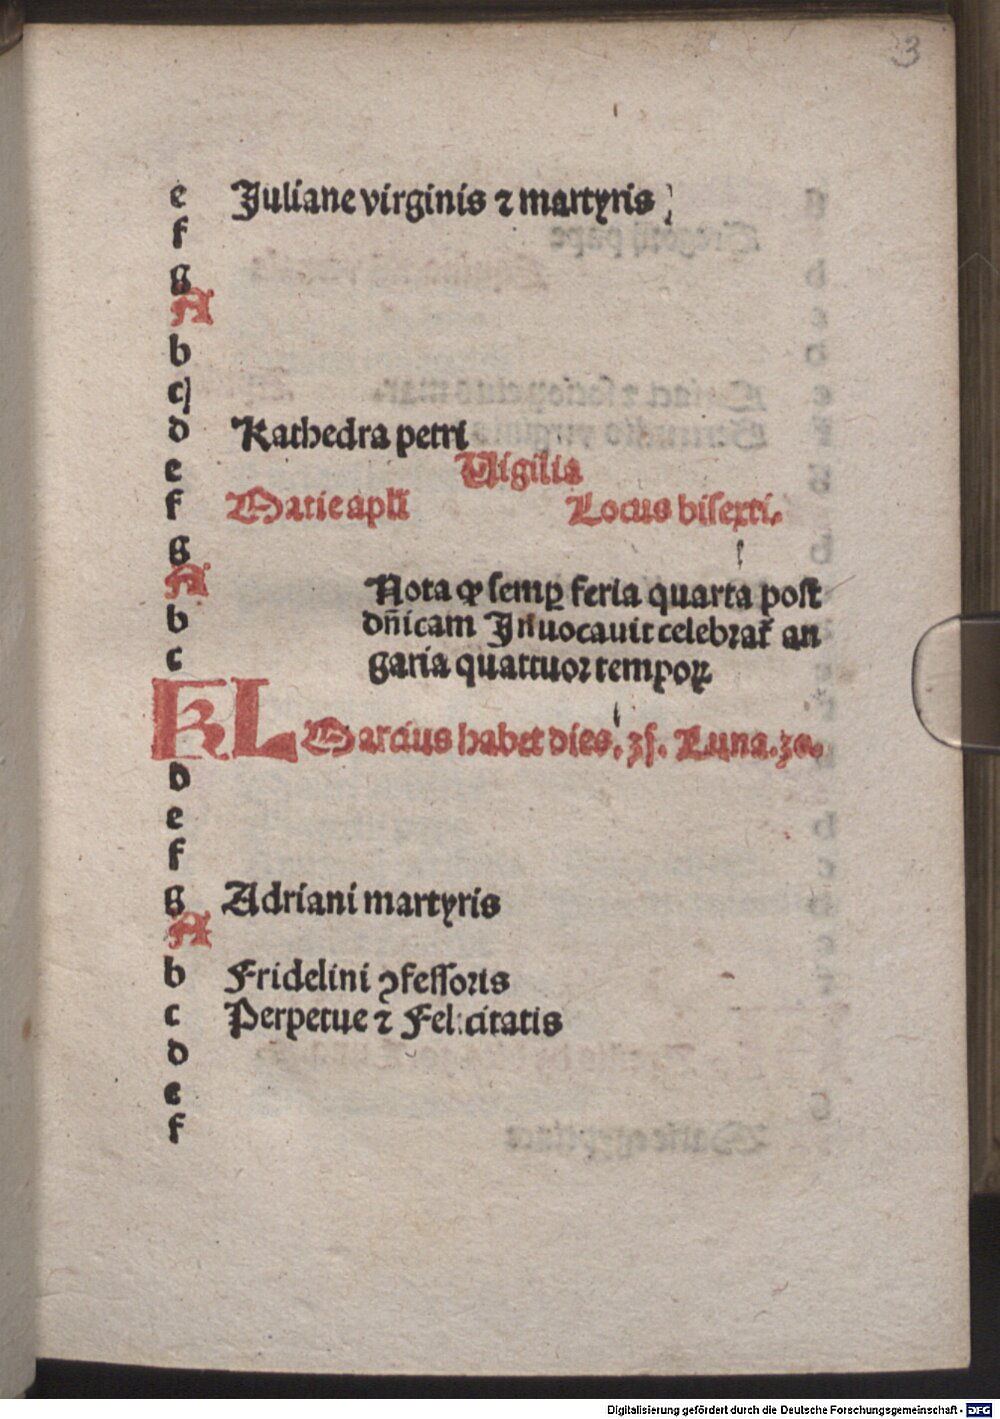 3
e Juliane virginis ⁊ martyris
f
g
A
b
c
d Kathedra petri
e Vigilia
f Matie apłi Locus bisexti.
g
A Nota ꝙ semꝑ feria quarta post
b dñicam Inuocauit celebrat᷑ an
c garia quattuor temporꝝ
KL Marcius habet dies. 31. Luna. 30.
d
e
f
g Adriani martyris
A
b Fridelini ꝯfessoris
c Perpetue ⁊ Felicitatis
d
e
f
Digitalisierung gefördert durch die Deutsche Forschungsgemeinschaft - DFG